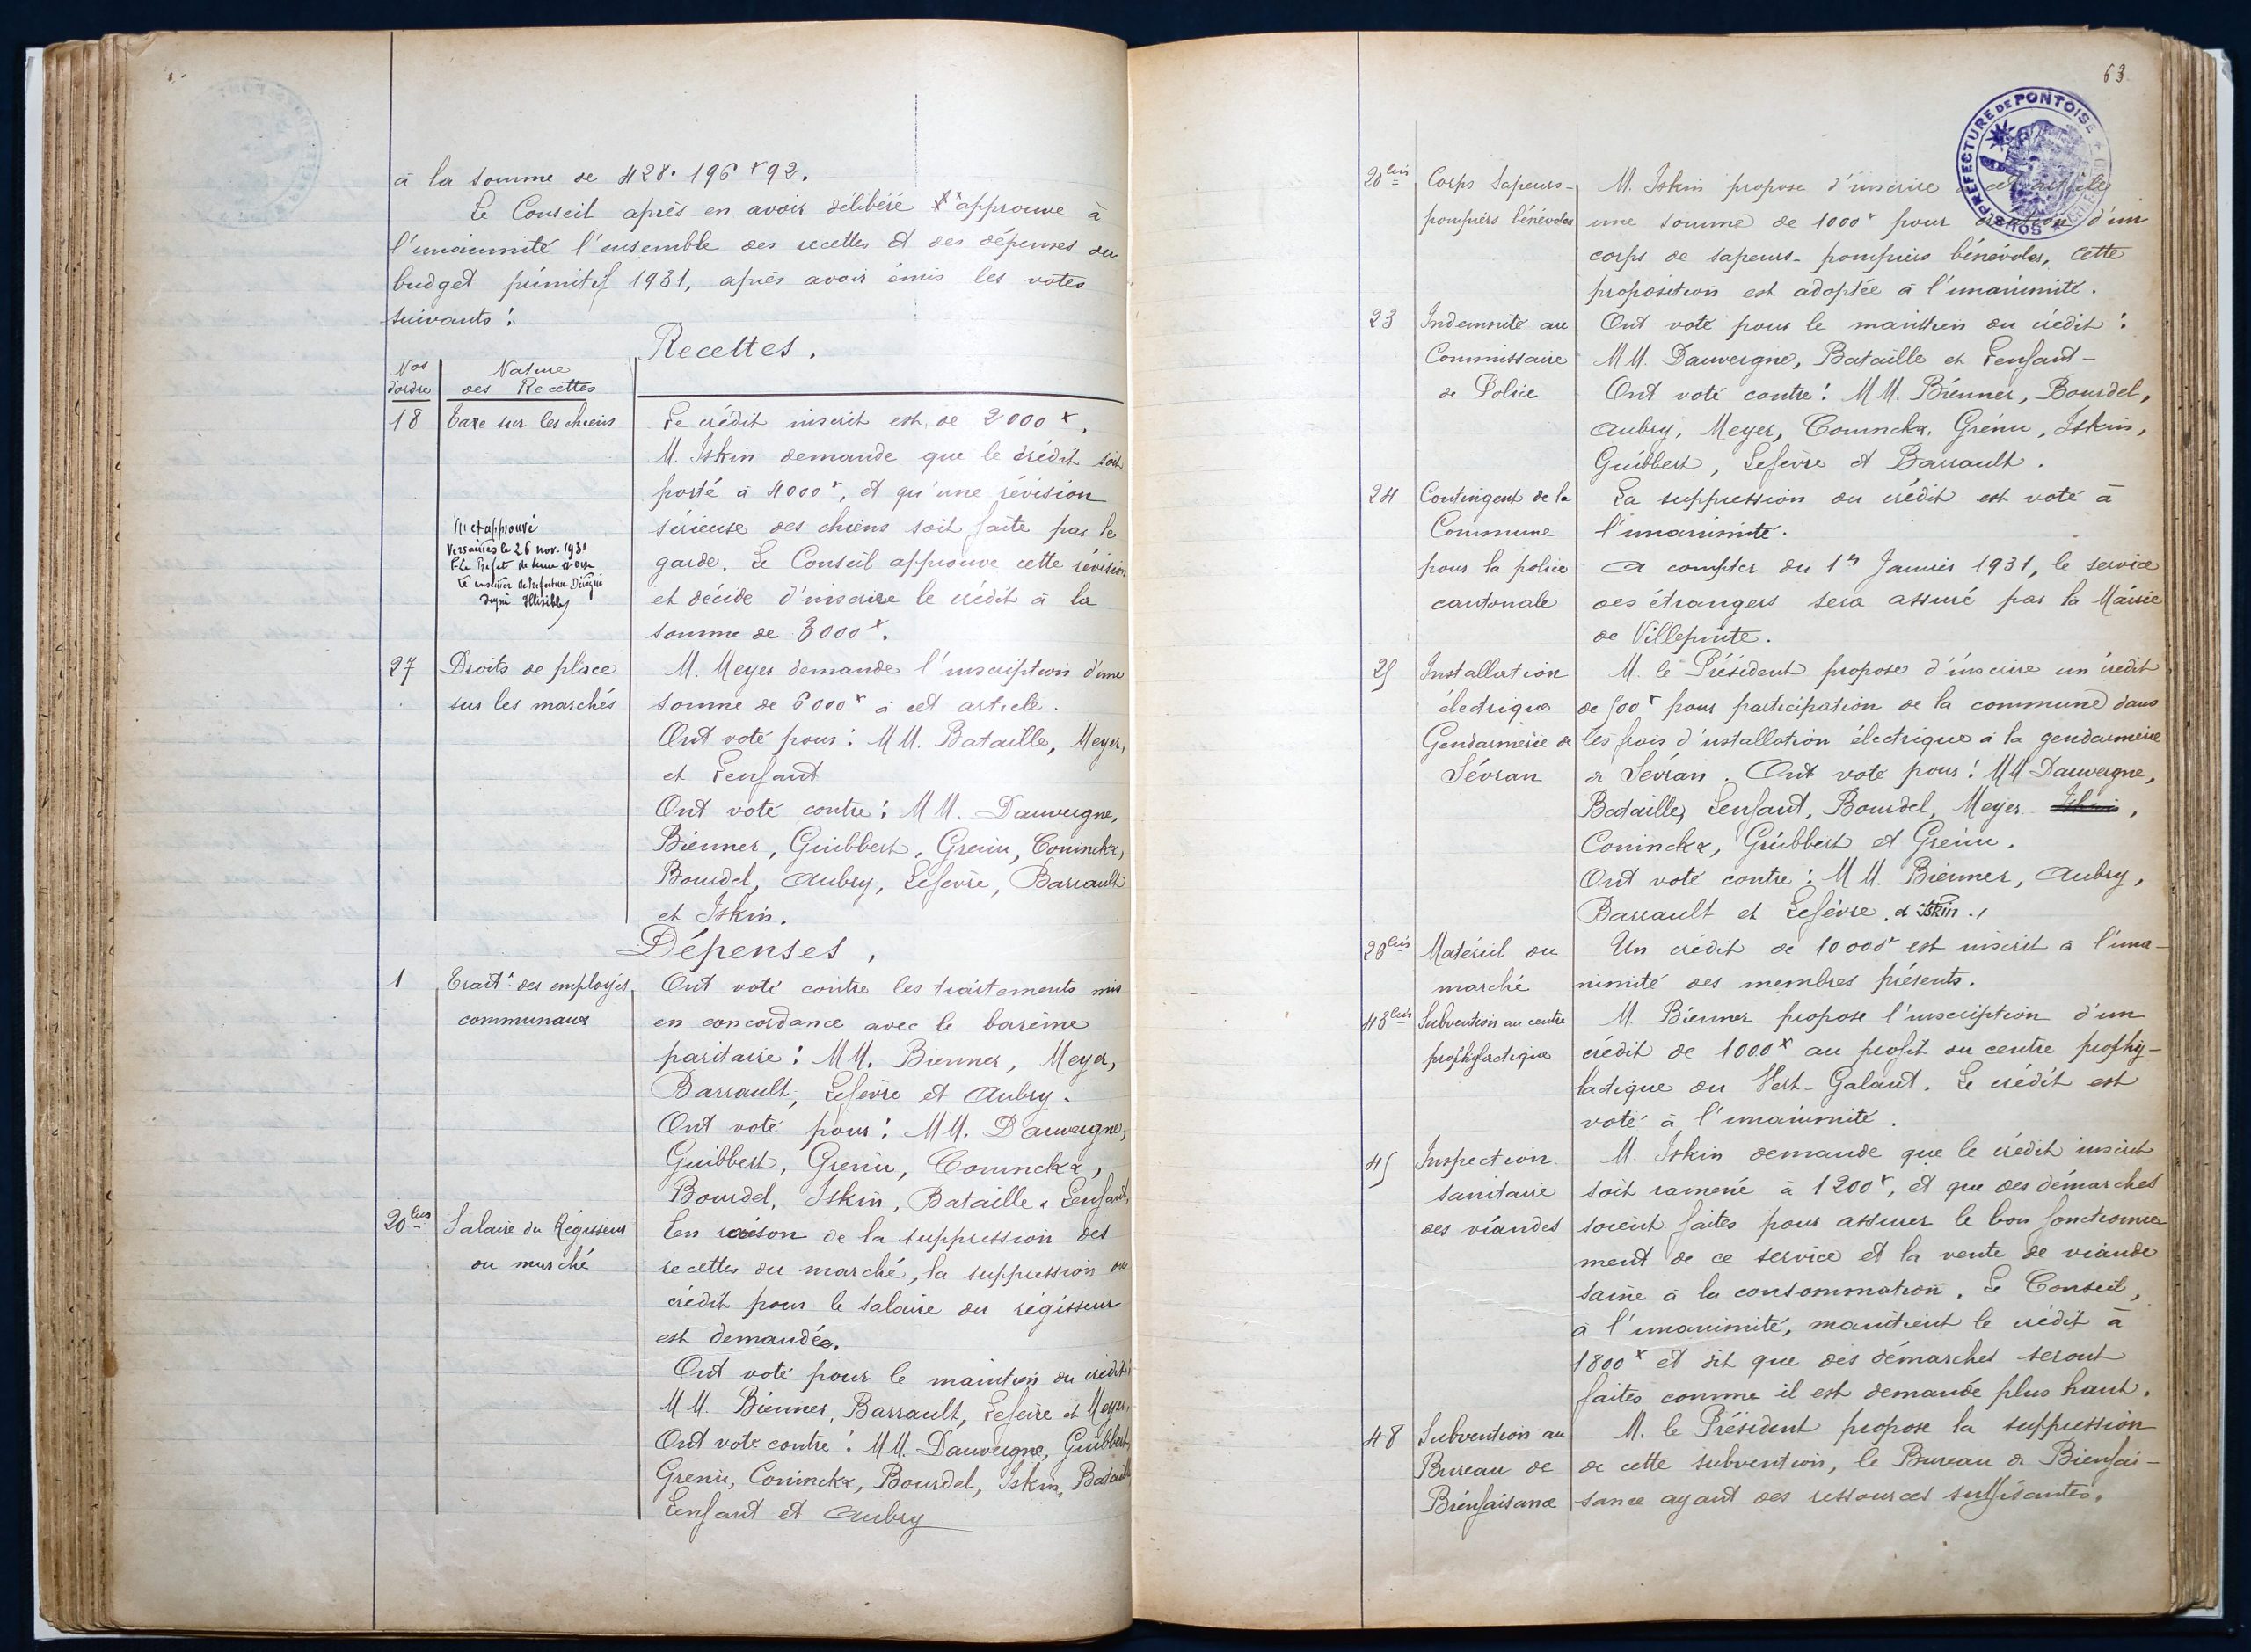 à la somme de 428.196 f 92.
Le Conseil après en avoir délibéré approuve à
l'unanimité l'ensemble des recettes et des dépenses du
budget primitif 1931, après avoir émis les votes
suivants :
Recettes.
Nos d'ordre
Nature des Recettes
18
Taxe sur les chiens
Le crédit inscrit est de 2000 f.
M. Iskin demande que le crédit soit
porté à 4000 f, et qu'une révision
sérieuse des chiens soit faite par le
garde. Le Conseil approuve cette révision
et décide d'inscrire le crédit à la
somme de 3000 f.
Vu et approuvé
Versailles le 26 nov. 1931
P. le Préfet de Seine et Oise
Le conseiller de Préfecture Délégué
Signé Illisible
27
Droits de place
sur les marchés
M. Meyer demande l'inscription d'une
somme de 6000 f à cet article.
Ont voté pour : MM. Bataille, Meyer,
et Lenfant
Ont voté contre : MM. Dauvergne,
Bienner, Guibbert, Grenu, Coninckx,
Bourdel, Aubry, Lefèvre, Barrault
et Iskin.
Dépenses,
1
Trait.t des employés
communaux
Ont voté contre les traitements mis
en concordance avec le barème
paritaire : MM. Bienner, Meyer,
Barrault, Lefèvre et Aubry.
Ont voté pour : MM. Dauvergne,
Guibbert, Grenu, Coninckx,
Bourdel, Iskin, Bataille, Lenfant,
20 bis
Salaire du Régisseur
du marché
En raison de la suppression des
recettes du marché, la suppression du
crédit pour le salaire du régisseur
est demandée.
Ont voté pour le maintien du crédit :
MM. Bienner, Barrault, Lefèvre et Meyer,
Ont voté contre : MM. Dauvergne, Guibbert,
Grenu, Coninckx, Bourdel, Iskin, Bataille
Lenfant et Aubry
63
SOUS-PREFECTURE DE PONTOISE
20 bis
Corps Sapeurs-
pompiers bénévoles
M. Iskin propose d'inscrire à cet article
une somme de 1000 f pour création d'un
corps de sapeurs-pompiers bénévoles, cette
proposition est adoptée à l'unanimité.
23
Indemnité au
Commissaire
de Police
Ont voté pour le maintien du crédit :
MM. Dauvergne, Bataille et Lenfant -
Ont voté contre : MM. Bienner, Bourdel,
Aubry, Meyer, Coninckx, Grenu, Iskin,
Guibbert, Lefèvre et Barrault.
24
Contingent de la
Commune
pour la police
cantonale
La suppression du crédit est voté à
l'unanimité.
A compter du 1er Janvier 1931, le service
des étrangers sera assuré par la Mairie
de Villepinte.
25
Installation
électrique
Gendarmerie de
Sévran
M. le Président propose d'inscrire un crédit
de 500 f pour participation de la commune dans
les frais d'installation électrique à la gendarmerie
de Sévran. Ont voté pour : MM. Dauvergne,
Bataille, Lenfant, Bourdel, Meyer, Iskin,
Coninckx, Guibbert et Grenu.
Ont voté contre : MM. Bienner, Aubry,
Barrault et Lefèvre. et Iskin.
26 bis
Matériel du
marché
Un crédit de 10000 f est inscrit à l'una-
nimité des membres présents.
43 bis
Subvention au centre
prophylactique
M. Bienner propose l'inscription d'un
crédit de 1000 f au profit du centre prophy-
lactique du Vert-Galant. Le crédit est
voté à l'unanimité.
45
Inspection
sanitaire
des viandes
M. Iskin demande que le crédit inscrit
soit ramené à 1200 f, et que des démarches
soient faites pour assurer le bon fonctionne
ment de ce service et la vente de viande
saine à la consommation. Le Conseil,
à l'unanimité, maintient le crédit à
1800 f et dit que des démarches seront
faites comme il est demandé plus haut.
48
Subvention au
Bureau de
Bienfaisance
M. le Président propose la suppression
de cette subvention, le Bureau de Bienfai-
sance ayant des ressources suffisantes.